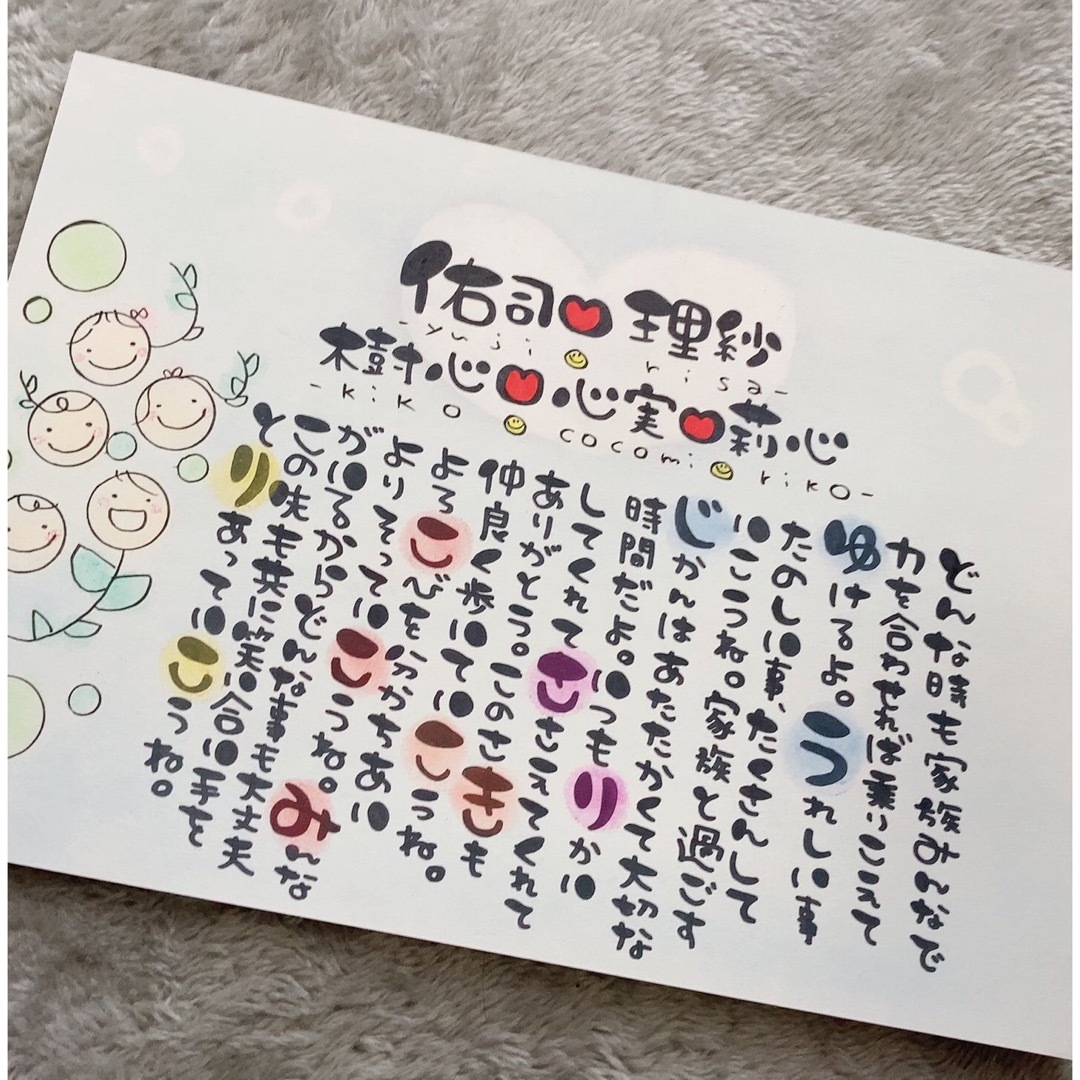 佑司 理紗
-yuji risa-
樹心 心実 莉心
-kiko cocomi riko-
どんな時も家族みんなで
力を合わせれば乗りこえて
ゆけるよ。うれしい事
たのしい事、たくさんして
いこうね。家族と過ごす
じかんはあたたかくて大切な
時間だよ。いつもりかい
してくれてささえてくれて
ありがとう。このさきも
仲良く歩いていこうね。
よろこびを分かちあい
よりそっていこうね。みんな
がいるからどんな事も大丈夫
この も共に笑い合い手を
とりあっていこうね。